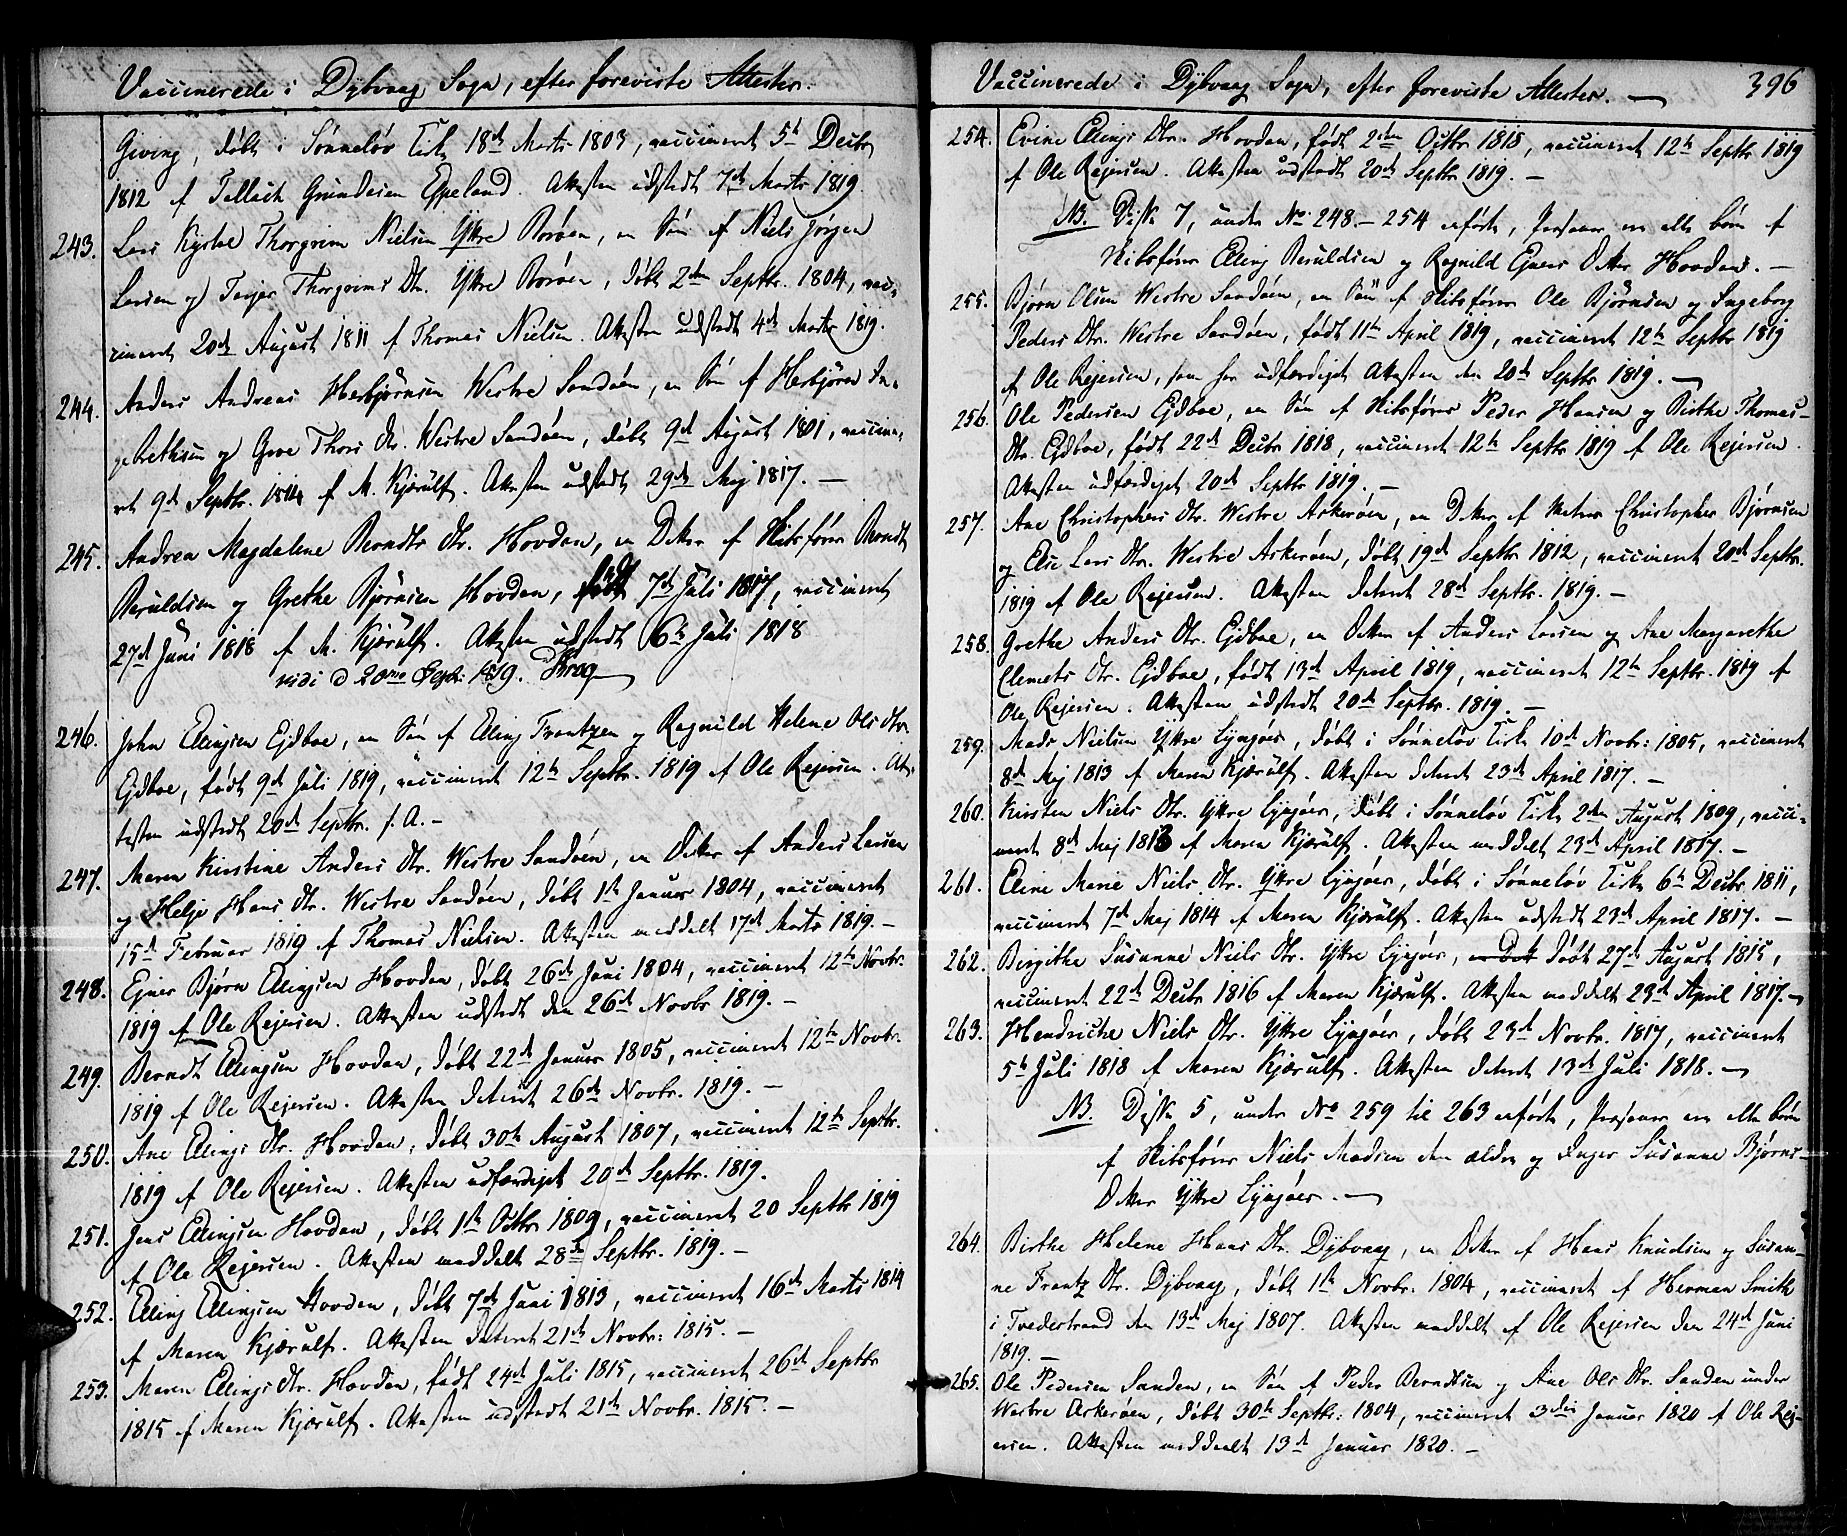 Vaccinerede i Dybvaag Sogn, efter foreviste Attester.
Giving, døbt i Sønneløv Kirke 18de Marts 1803, vaccineret 5te Decbr
1812 af Tellach Gundersen Eppeland. Attesten udstedt 7de Marts 1819.
243. Lars Thorgrim Nielsen Ytre Borøen, en Søn af Niels Jørgen
Larsen og Thorgrims Dtr. Ytre Borøen, døbt 2den Septbr. 1804, vac-
cineret 20de August 1811 af Thomas Nielsen. Attesten udstedt 4de Marts 1819.
244. Anders Andreas Herbjørnsen Westre Sandøen, en Søn af Herbjørn In-
gebrethsen og Groe Thors Dtr. Westre Sandøen, døbt 9de August 1801, vaccine-
ret 9de Septbr. 1814 af M. Kjærulf. Attesten udstedt 29de Maj 1817. —
245. Andrea Magdalene Berndts Dtr. Hovden, en Datter af Skibsfører Berndt
Beruldsen og Grethe Bjørnsen Hovden, født 7de Juli 1817, vaccineret
27de Juni 1818 af M. Kjærulf. Attesten udstedt 6te Juli 1818
vidi d 20de Septr. 1819. Krog
246. John Ellingsen Ejdboe, en Søn af Elling Frantzen og Ragnild Helene Ols Dtr.
Ejdboe, født 9de Juli 1819, vaccineret 12te Septbr. 1819 af Ole Rejersen. At-
testen udstedt 20de Septbr. s. A. —
247. Maren Kirstine Anders Dtr. Westre Sandøen, en Datter af Anders Larsen
og Helje Hans Dtr. Westre Sandøen, døbt 1te Januar 1804, vaccineret
15de Februar 1819 af Thomas Nielsen. Attesten meddelt 17de Marts 1819. —
248. Ejner Bjørn Ellingsen Hovden, døbt 26de Juni 1804, vaccineret 12te Novbr.
1819 af Ole Rejersen. Attesten udstedt den 26de Novbr 1819. —
249. Berndt Ellingsen Hovden, døbt 22de Januar 1805, vaccineret 12te Novbr.
1819 af Ole Rejersen. Attesten dateret 26de Novbr. 1819. —
250. Ane Ellings Dtr. Hovden, døbt 30te August 1807, vaccineret 12te Septbr.
1819 af Ole Rejersen. Attesten udfærdiget 20de Septbr. 1819.
251. Jens Ellingsen Hovden, døbt 1te Octbr 1809, vaccineret 20 Septbr 1819
af Ole Rejersen. Attesten meddelt 28de Septbr. 1819. —
252. Elling Ellingsen Hovden, døbt 7de Juni 1813, vaccineret 16de Marts 1814
af Maren Kjærulf. Attesten dateret 21de Novbr: 1815. —
253. Maren Ellings Dtr. Hovden, født 24de Juli 1815, vaccineret 26de Septbr
1815 af Maren Kjærulf. Attesten udstedt 21de Novbr. 1815. —
Vaccinerede i Dybvaag Sogn, efter foreviste Attester. — 396
254. Evine Ellings Dtr. Hovden, født 2den Octbr 1818, vaccineret 12te Septbr 1819
af Ole Rejersen. Attesten udstedt 20de Septbr 1819. —
NB. Disse 7, under No. 248 - 254 anførte, Personer ere alle børn af
Skibsfører Elling Beruldsen og Ragnild Ejners Datter Hovden. —
255. Bjørn Olsen Westre Sandøen, en Søn af Skibsfører Ole Bjørnsen og Ingeborg
Peders Dtr. Westre Sandøen, født 11te April 1819, vaccineret 12te Septbr 1819
af Ole Rejersen, som har udfærdiget Attesten den 20de Septbr 1819. —
256. Ole Pedersen Ejdboe, en Søn af Skibsfører Peder Hansen og Birthe Thomas-
Dtr. Ejdboe, født 22de Decbr 1818, vaccineret 12te Septbr 1819 af Ole Rejersen.
Attesten udfærdiget 20de Septbr 1819. —
257. Ane Christophers Dtr. Westre Askerøen, en Datter af Matros Christopher Bjørnsen
og Else Lars Dtr. Westre Askerøen, døbt 19de Septbr 1812, vaccineret 20de Septbr.
1819 af Ole Rejersen. Attesten dateret 28de Septbr. 1819. —
258. Grethe Anders Dtr. Ejdboe, en Datter af Anders Larsen og Ane Margarethe
Clemets Dtr. Ejdboe, født 13de April 1819, vaccineret 12te Septbr. 1819 af
Ole Rejersen. Attesten udstedt 20de Septbr. 1819. —
259. Mads Nielsen Ytre Lyngøer, døbt i Sønneløv Kirke 10de Novbr: 1805, vaccineret
8de Maj 1813 af Maren Kjærulf. Attesten dateret 23de April 1817. —
260. Kirsten Niels Dtr. Ytre Lyngøer, døbt i Sønneløv Kirke 2den August 1809, vacci-
neret 8de Maj 1813 af Maren Kjærulf. Attesten meddelt 23de April 1817. —
261. Eline Marie Niels Dtr. Ytre Lyngøer, døbt i Sønneløv Kirke 6te Decbr. 1811,
vaccineret 7de Maj 1814 af Maren Kjærulf. Attesten udstedt 23de April 1817. —
262. Birgithe Susanne Niels Dtr. Ytre Lyngøer, døbt 27de August 1815,
vaccineret 22de Decbr 1816 af Maren Kjærulf. Attesten meddelt 23de April 1817. —
263. Hendriche Niels Dtr. Ytre Lyngøer, døbt 23de Novbr. 1817, vaccineret
5te Juli 1818 af Maren Kjærulf. Attesten dateret 13de Juli 1818. —
NB. Disse 5, under No 259 til 263 anførte, Personer ere alle børn
af Skibsfører Niels Madsen den ældre og Inger Susanne Bjørns-
Datter Ytre Lyngøer. —
264. Birthe Helene Hans Dtr. Dybvaag, en Datter af Hans Knudsen og Susan-
ne Frantz Dtr. Dybvaag, døbt 1te Novbr. 1804, vaccineret af Herman Smith
i Tvedestrand den 13de Maj 1807. Attesten meddelt af Ole Rejersen den 24de Juni
1819. —
265. Ole Pedersen Sanden, en Søn af Peder Berndtsen og Ane Ols Dtr. Sanden under
Westre Askerøen, døbt 30te Septbr: 1804, vaccineret 3die Januar 1820 af Ole Rej-
ersen. Attesten meddeelt 13de Januar 1820. —